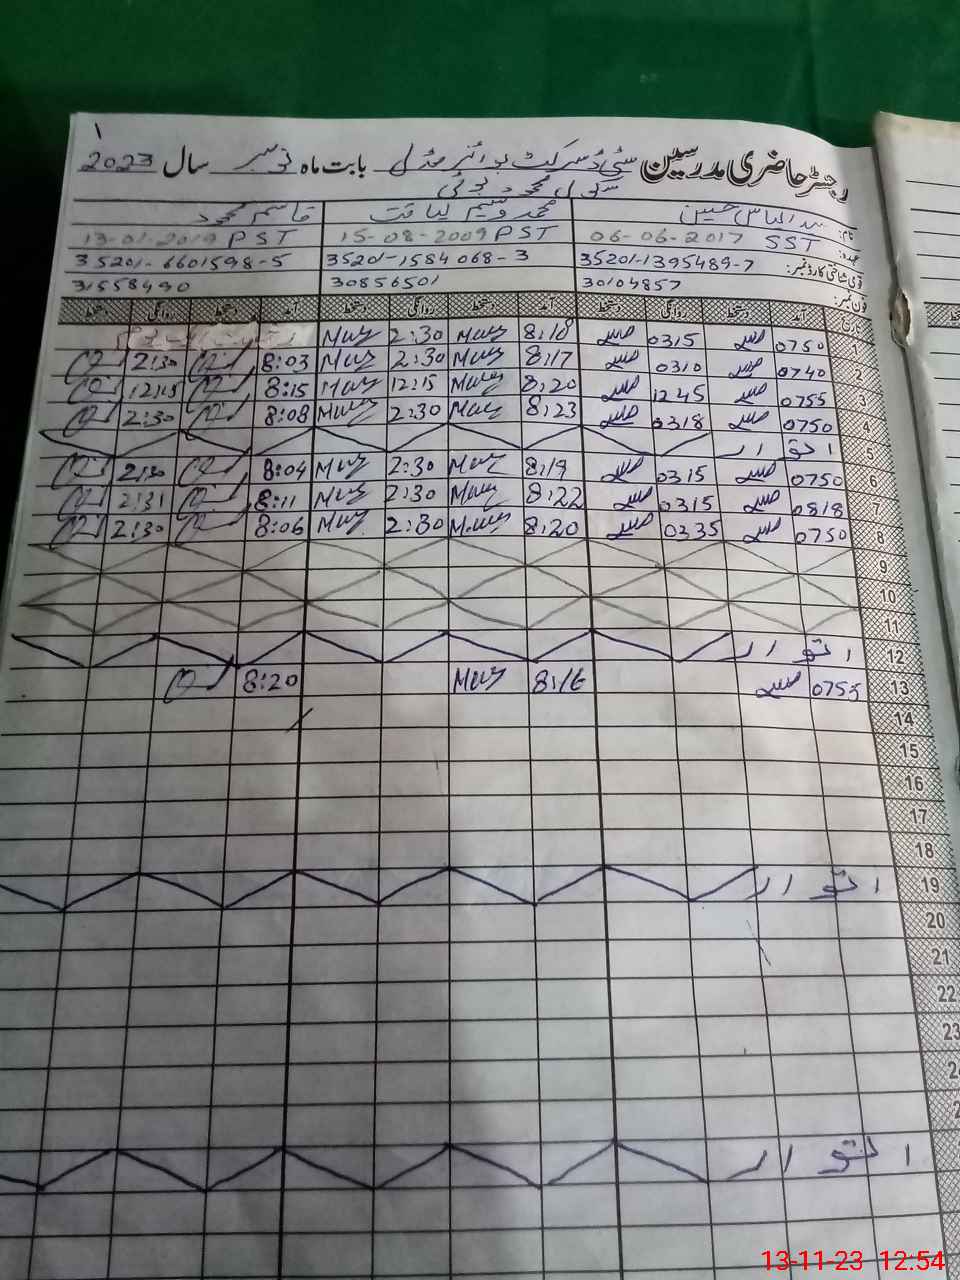 ۱
رجسٹر حاضری مدرسین سٹی ڈسٹرکٹ بوائز مڈل بابت ماہ نومبر سال 2023
سکول محمود بوٹی
نام: سید الیاس حسین محمد وسیم لیاقت قاسم محمود
عہدہ: 06-06-2017 SST 15-08-2009 PST 13-01-2019 PST
قومی شناختی کارڈ نمبر: 35201-1395489-7 35201-1584068-3 35201-6601598-5
فون نمبر: 30104857 30856501 31558490
تاریخ آمد دستخط روانگی دستخط آمد دستخط روانگی دستخط آمد دستخط روانگی دستخط
1 0750 0315 8:18 2:30
2 0740 0310 8:17 2:30 8:03 2:30
3 0755 1245 8:20 12:15 8:15 12:15
4 0750 0318 8:23 2:30 8:08 2:30
5 اتوار
6 0750 0315 8:19 2:30 8:04 2:30
7 0818 0315 8:22 2:30 8:11 2:31
8 0750 0335 8:20 2:30 8:06 2:30
9
10
11
12 اتوار
13 0755 8:16 8:20
14
15
16
17
18
19 اتوار
20
21
22
23
اتوار
13-11-23 12:54